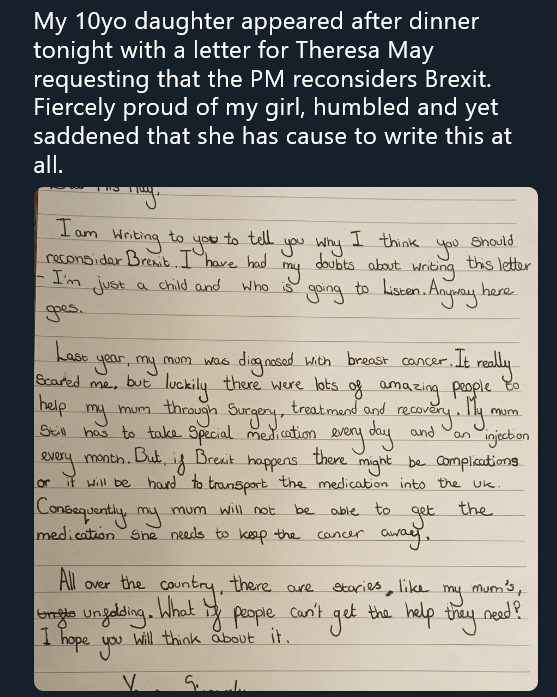 My 10yo daughter appeared after dinner
tonight with a letter for Theresa May
requesting that the PM reconsiders Brexit.
Fiercely proud of my girl, humbled and yet
saddened that she has cause to write this at
all.
May,
I am writing to you to tell you why I think you should
reconsidar Brexit. I have had my doubts about writing this letter
- I'm just a child and who is going to Listen. Anyway here
goes.
Last year, my mom was diagnosed with breast cancer. It really
Scared me, but luckily there were lots of amazing people to
help my mum through Surgery, treatmend and recovery. My mum
Still has to take Special medication every day and an injection
every month. But, if Brexit happens there might be complications
or it will be hard to transport the medication into the uk.
Consequently my mum will not be able to get the
medication She needs to keep the cancer away.
All over the country, there are stories, like my mum's,
ungolding. What if people can't get the help they need?
I hope you will think about it.